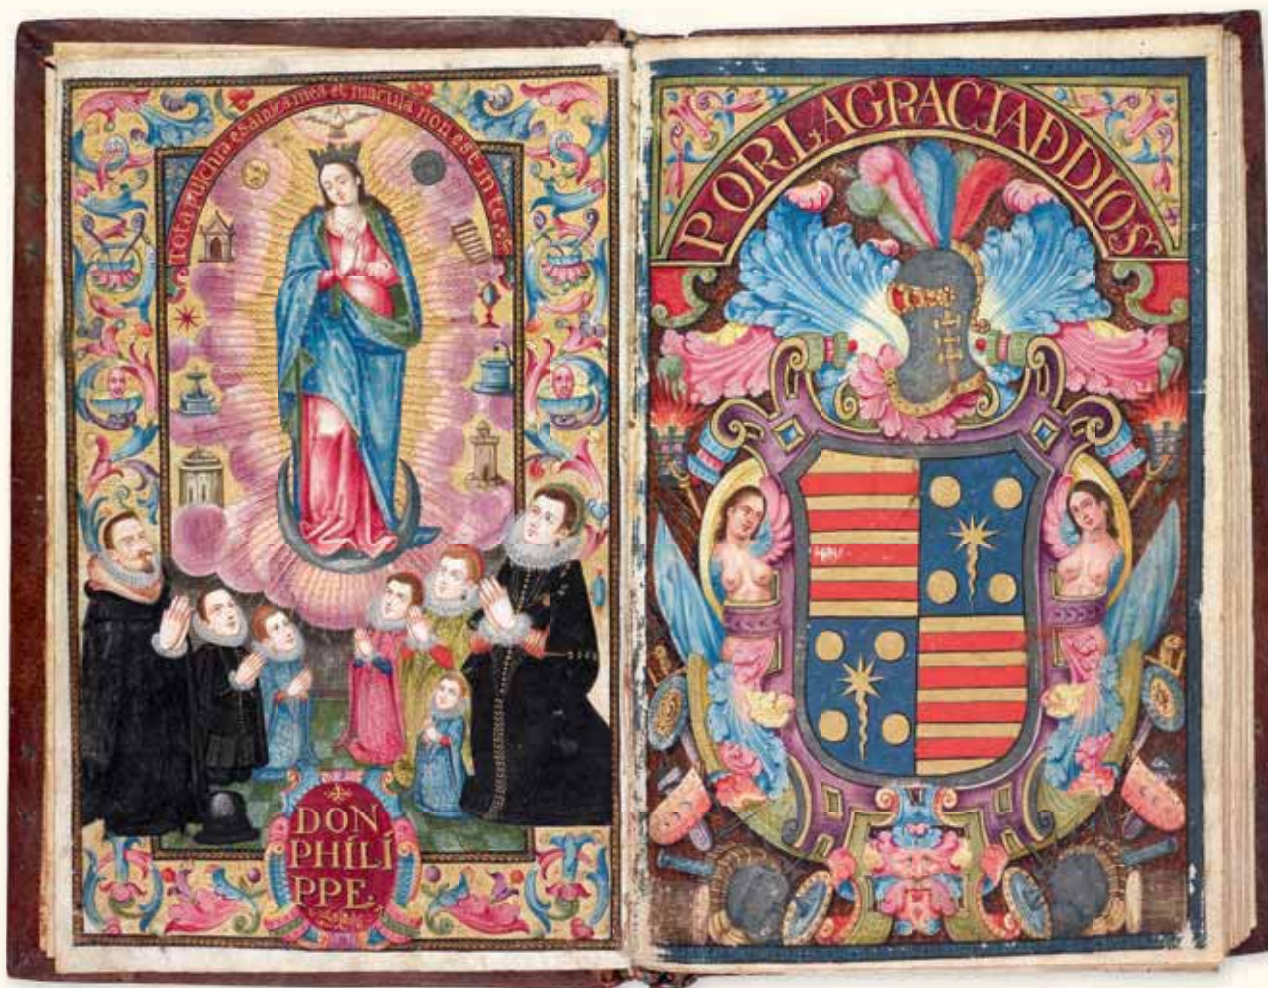 Tota pulchra es amica mea et macula non est in te
DON
PHÍLÍ
PPE.
POR LA GRACIA D DIOS